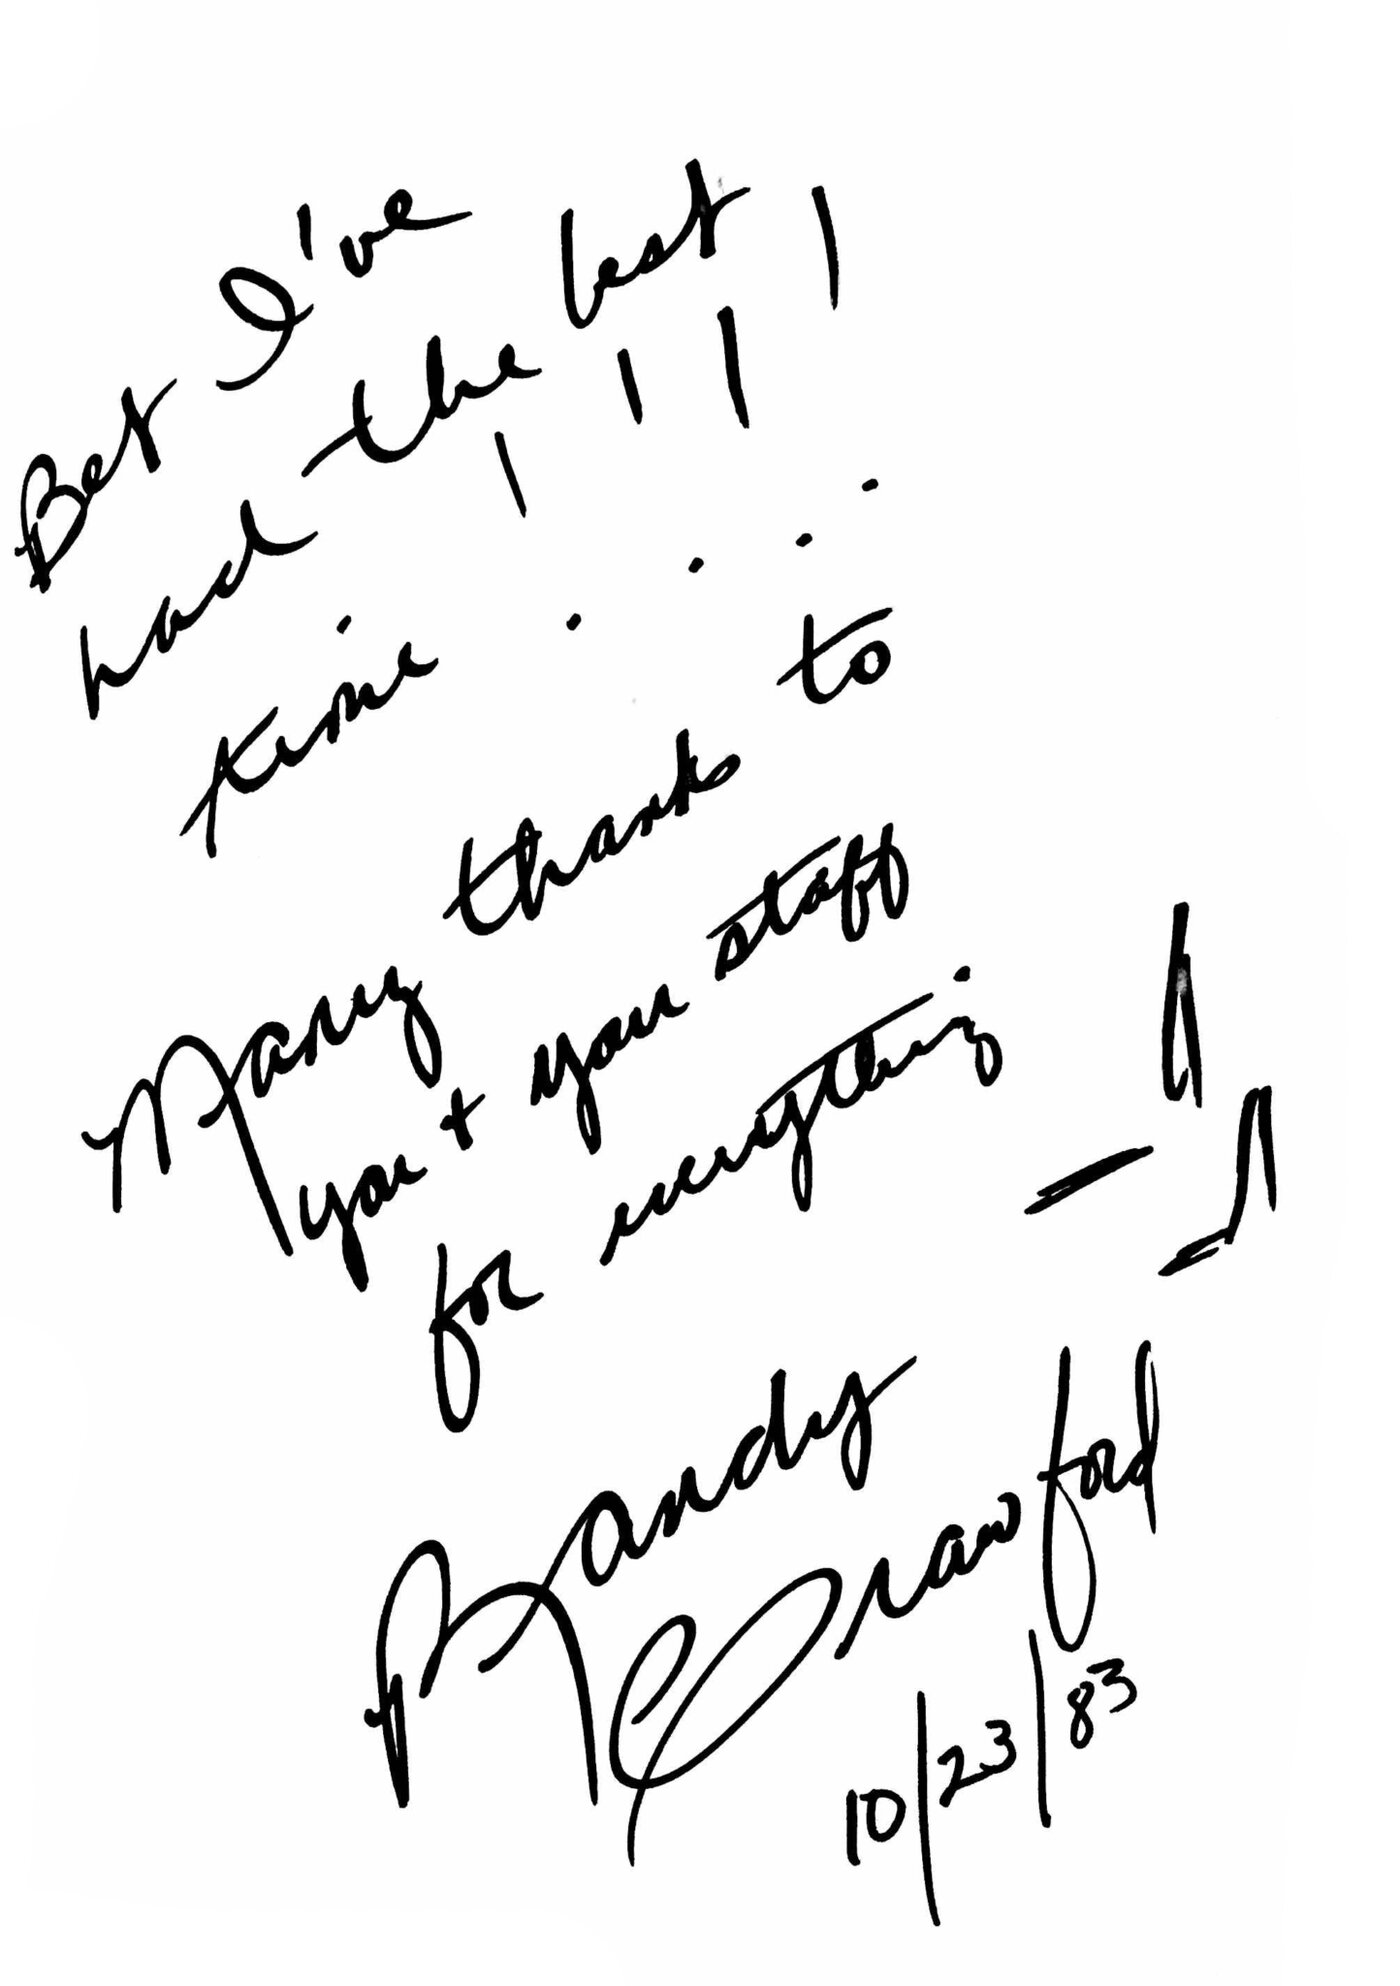 Bet I've
had the best
time !!!!
Many thanks to
you + your staff
for everything —
Randy
Crawford
10/23/83